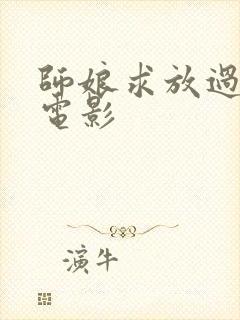 師娘求放過
電影
演牛